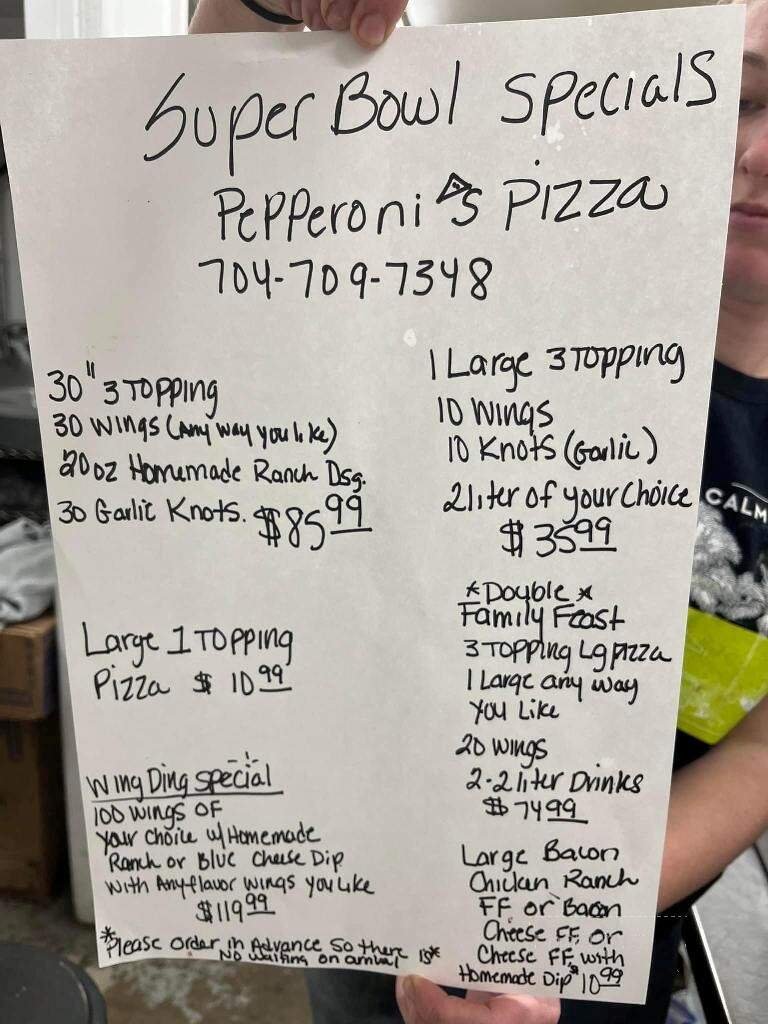 Super Bowl Specials
Pepperoni's Pizza
704-709-7348
30" 3 Topping
30 wings (Any way you like)
20oz Homemade Ranch Dsg.
30 Garlic Knots. $85.99
1 Large 3 Topping
10 Wings
10 Knots (Garlic)
2 liter of your choice
$35.99
Large 1 Topping
Pizza $10.99
*Double*
Family Feast
3 Topping Lg pizza
1 Large any way
you Like
20 wings
2-2 liter Drinks
$74.99
Wing Ding Special
100 wings of
your choice w/ Homemade
Ranch or Blue Cheese Dip
with Any flavor wings you Like
$119.99
Large Bacon
Chicken Ranch
FF or Bacon
Cheese FF, or
Cheese FF, with
Homemade Dip $10.99
*Please order in Advance so there is*
No waiting on arrival
CALM